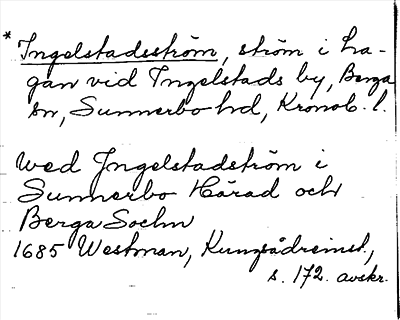 * Ingelstadsström, ström i La-
gan vid Ingelstads by, Berga
sn, Sunnerbo hd, Kronob. l.
wed Jngelstadström i
Sunnerbo Härad och
Berga Sochn
1685 Westman, Kungsådreinst.,
s. 172. avskr.